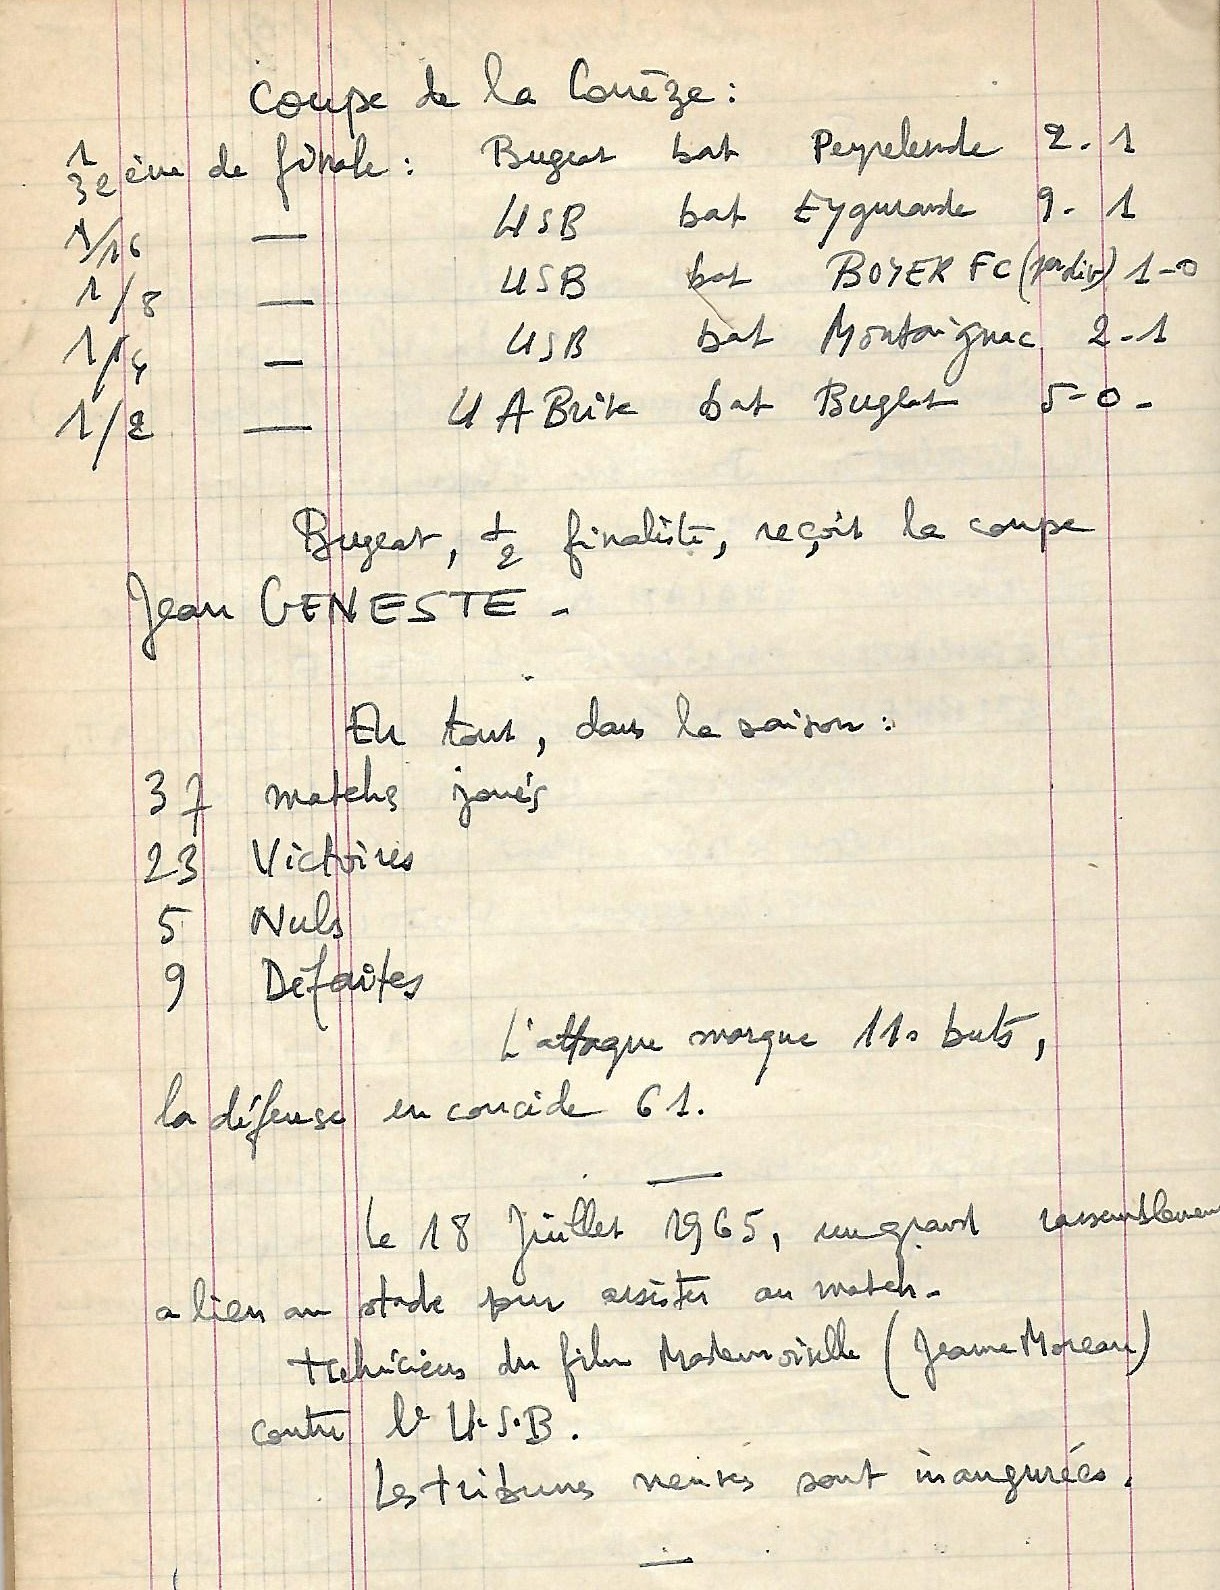 Coupe de la Corrèze :
1/32 ème de finale : Bugeat bat Peyrelevade 2-1
1/16 — USB bat Eygurande 9-1
1/8 — USB bat BOYER FC (1er div) 1-0
1/4 — USB bat Montaignac 2-1
1/2 — UA Brive bat Bugeat 5-0 -
Bugeat, 1/2 finaliste, reçoit la coupe
Jean GENESTE -
En tout, dans la saison :
37 matchs joués
23 Victoires
5 Nuls
9 Défaites
L'attaque marque 110 buts,
la défense en concède 61.
Le 18 Juillet 1965, un grand rassemblement
a lieu au stade pour assister au match -
techniciens du film Mademoiselle (Jeanne Moreau)
contre l'U.S.B.
Les tribunes neuves sont inaugurées.